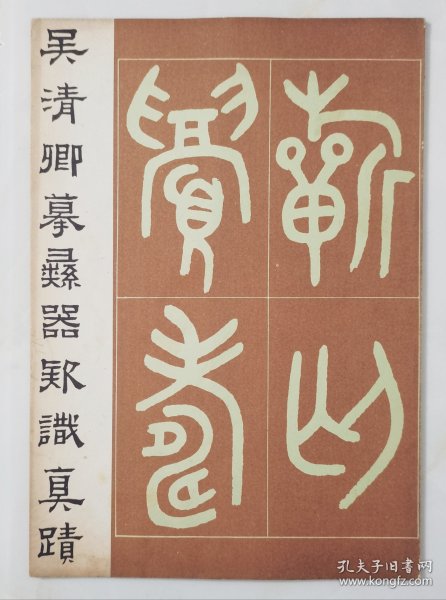 吳清卿摹彝器欵識真蹟
蘄匄
眉壽
孔夫子旧书网
www.kongfz.com